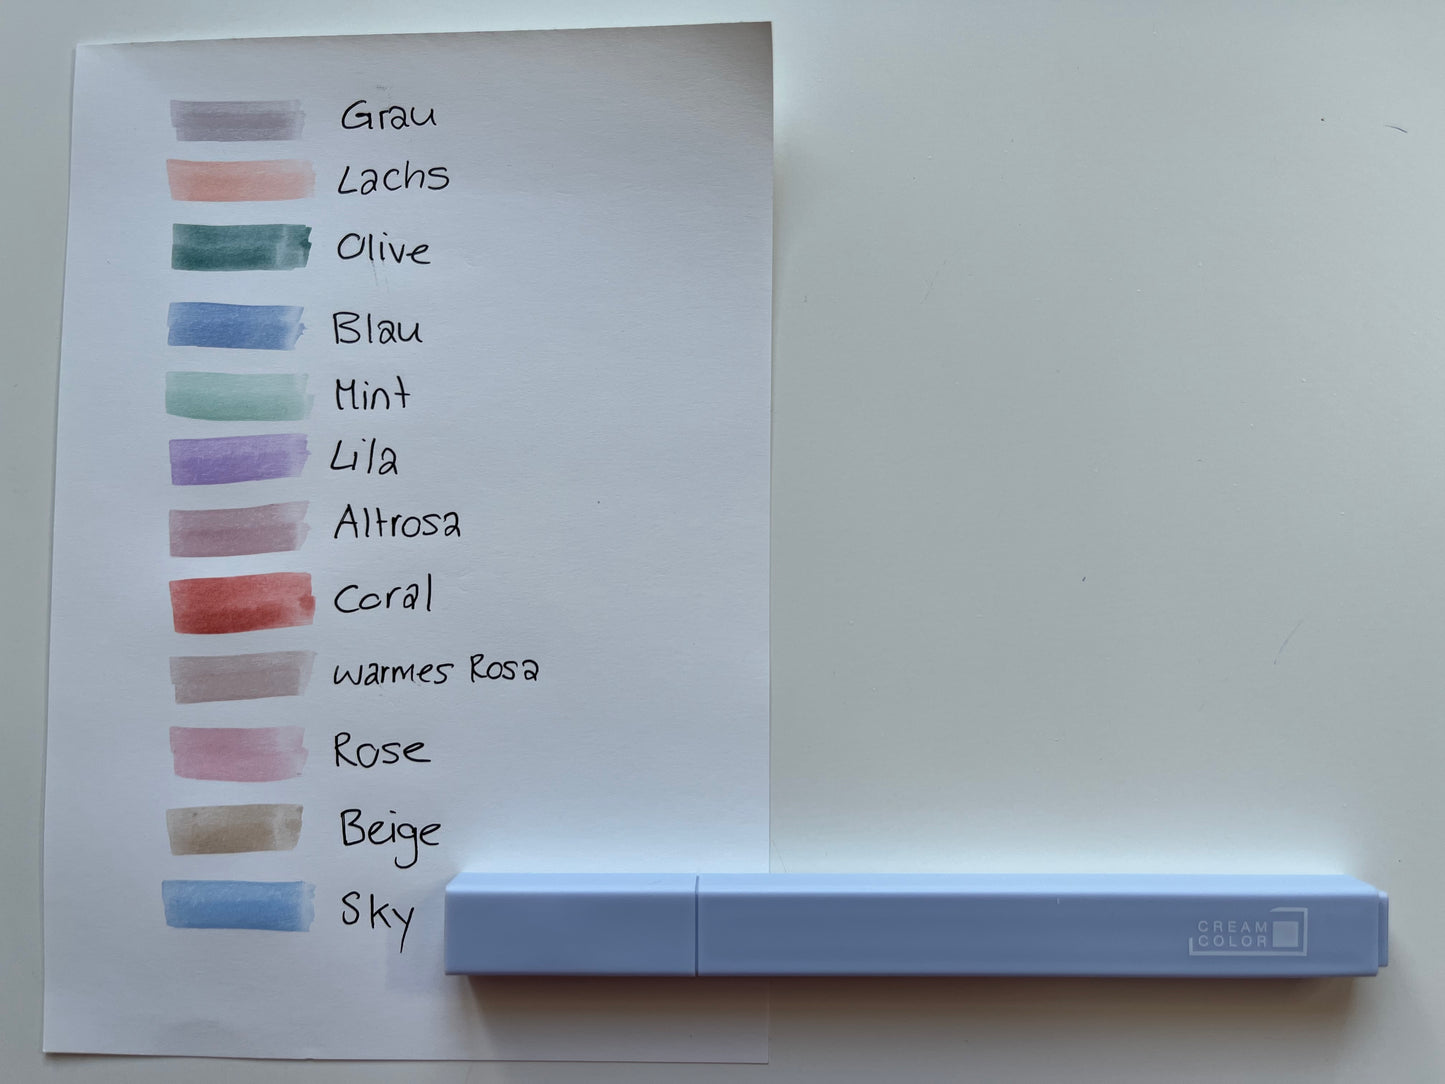 Grau
Lachs
Olive
Blau
Mint
Lila
Altrosa
Coral
warmes Rosa
Rose
Beige
Sky
CREAM
COLOR